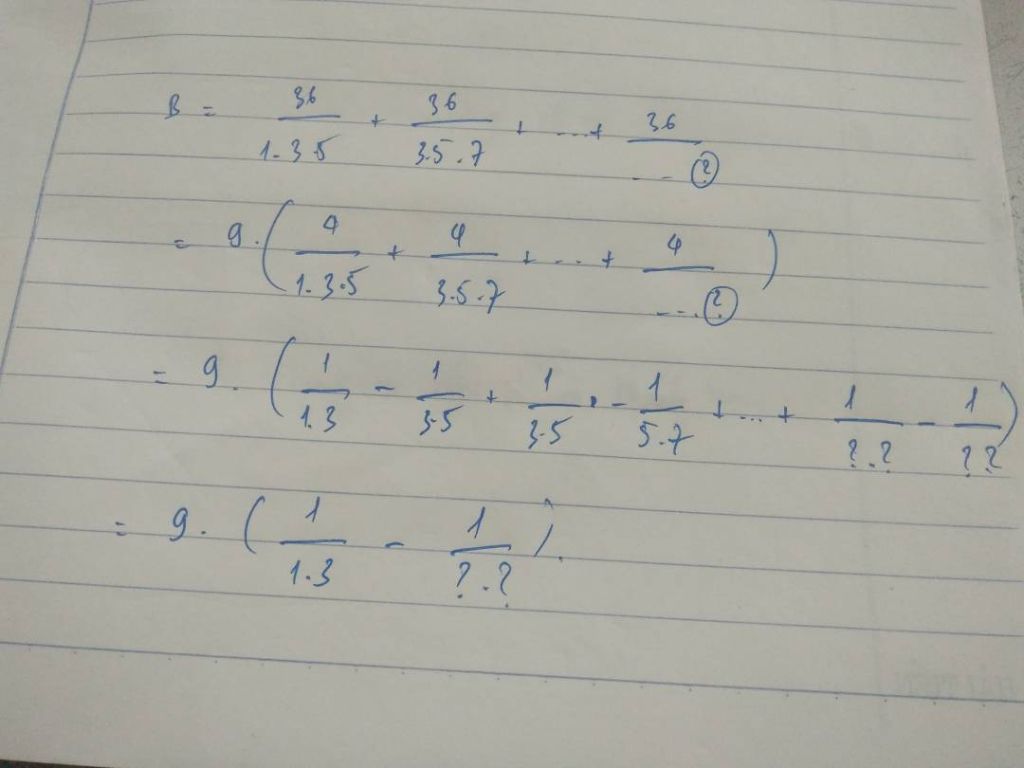 B = 36/1.3.5 + 36/3.5.7 + ...+ 36/...?
= 9.(4/1.3.5 + 4/3.5.7 + ... + 4/...?)
= 9.(1/1.3 - 1/3.5 + 1/3.5 - 1/5.7 + ... + 1/?.? - 1/??)
= 9.(1/1.3 - 1/?.?).